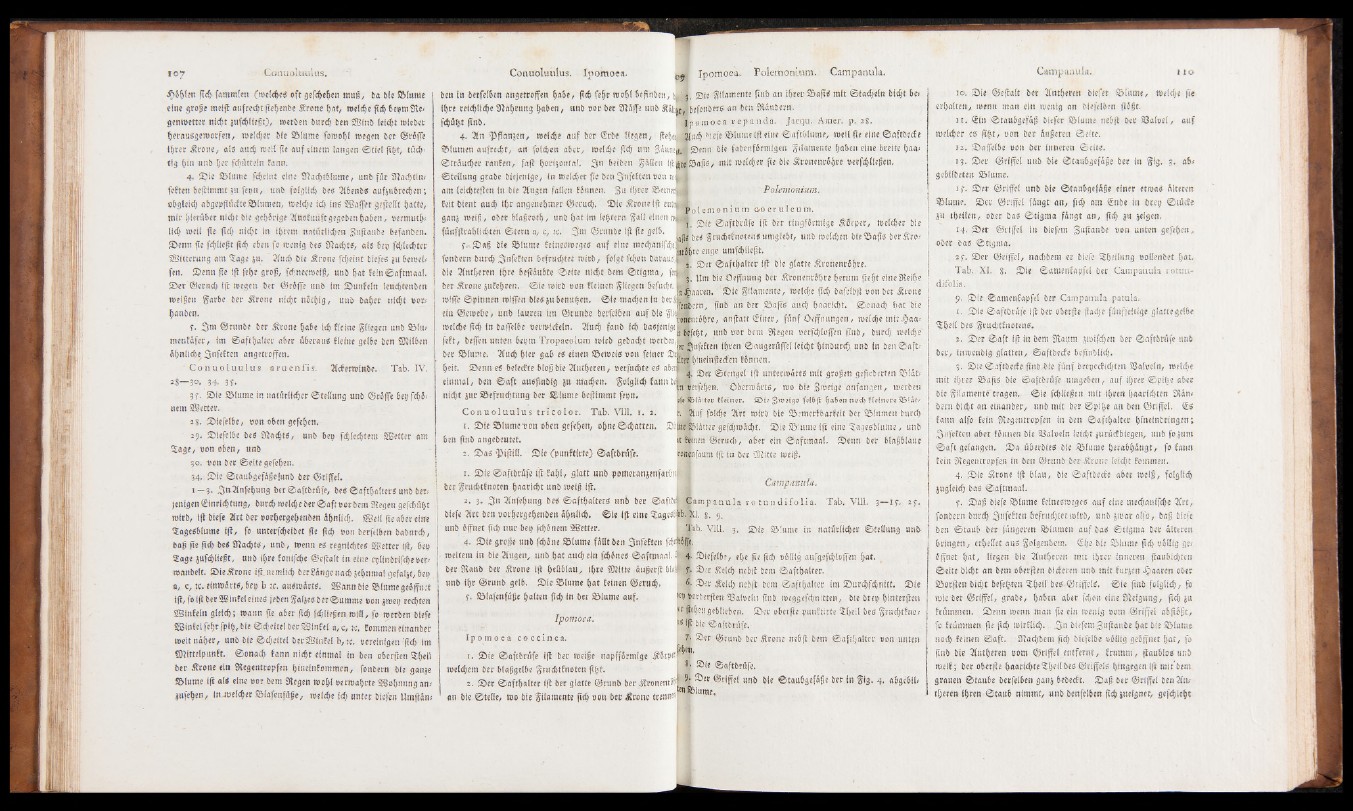 107 Conuoluulus.
Höhlen sich sammlen (welches oft geschehen muß, da die Blume
eine große meist aufrecht stehende Krone hat, welche sich beym Re-
genwetter nicht zuschließt), werden durch den Wind leicht wieder
herausgeworfen, welcher die Blume sowohl wegen der Größe
ihrer Krone, als auch weil sie auf einem langen Stiel sitzt, tüch-
tig hin und her schütteln kann.
4. Die Blume scheint eine Nachtblume, und für Nachtin-
sekten bestimmt zu seyn, und folglich des Abends aufzubrechen;
obgleich abgepflückte Blumen, welche ich ins Wasser gestellt hatte,
mir hierüber nicht die gehörige Auskunft gegeben haben, vermuth-
lich weil sie sich nicht in ihrem natürlichen Zustande befanden.
Denn sie schließt sich eben so wenig des Nachts, als bey schlechter
Witterung am Tage zu. Auch die Krone scheint dieses zu bewei-
sen. Denn sie ist sehr groß, schneeweiß, und hat kein Saftmaal.
Der Geruch ist wegen der Größe und im Dunkeln leuchtenden
weißen Farbe der Krone nicht nöthig, und daher nicht vor-
handen.
5. Im Grunde der Krone habe ich kleine Fliegen und Blu-
menkäfer, im Safthalter aber überaus kleine gelbe den Milben
ähnliche Insekten angetroffen.
Conuoluulus aruensis. Ackerwinde. Tab. IV.
28—30. 34. 35.
35. Die Blume in natürlicher Stellung und Größe bey schö-
nem Wetter.
28. Dieselbe, von oben gesehen.
29. Dieselbe des Nachts, und bey schlechtem Wetter am
Tage, von oben, und
30. von der Seite gesehen.
34. Die Staubgefäße und der Griffel.
1—3. In Ansehung der Saftdrüse, des Safthalters und der-
jenigen Einrichtung, durch welche der Saft vor dem Regen geschützt
wird, ist diese Art der vorhergehenden ähnlich. Weil sie aber eine
Tagesblume ist, so unterscheidet sie sich von derselben dadurch,
daß sie sich des Nachts, und, wenn es regnichtes Wetter ist, bey
Tage zuschließt, und ihre konische Gestalt in eine cylindrische ver-
wandelt. Die Krone ist nemlich der Länge nach zehnmal gefalzt, bey
a, c, ꝛc. einwärts, bey b ꝛc. auswärts. Wann die Blume geöffnet
ist, so ist der Winkel eines jeden Falzes der Summe von zwey rechten
Winkeln gleich; wann sie aber sich schließen will, so werden diese
Winkel sehr spitz, die Scheitel der Winkel a, c, ꝛc. kommen einander
weit näher, und die Scheitel der Winkel b, ꝛc. vereinigen sich im
Mittelpunkt. Sonach kann nicht einmal in den obersten Theil
der Krone ein Regentropfen hineinkommen, sondern die ganze
Blume ist als eine vor dem Regen wohl verwahrte Wohnung an-
zusehen, in welcher Blasenfüße, welche sich unter diesen Umstän-
Conuoluulus. Ipomoea.
den in derselben angetroffen habe, sich sehr wohl befinden,
ihre reichliche Nahrung haben, und vor der Nässe und
schützt sind.
4. An Pflanzen, welche auf der Erde liegen,
Blumen aufrecht, an solchen aber, welche sich um
Sträucher ranken, fast horizontal. In beiden Fällen
Stellung grade diejenige, in welcher sie den Insekten von
am leichtesten in die Augen fallen können. Zu ihrer
keit dient auch ihr angenehmer Geruch. Die Krone ist
ganz weiß, oder blaßroth, und hat im letztern Fall einen
fünfstrahlichten Stern a, c, ꝛc. Im Grunde ist sie gelb.
5. Daß die Blume keinesweges auf eine
sondern durch Insekten befruchtet wird, folgt schon
die Antheren ihre bestäubte Seite nicht dem Stigma,
der Krone zukehren. Sie wird von kleinen Fliegen besucht.
wisse Spinnen wissen dies zu benutzen. Sie machen in
ein Gewebe, und lauren im Grunde derselben auf die
welche sich in dasselbe verwickeln. Auch fand ich
sekt, dessen unten beym Tropaeolum wird gedacht
der Blume. Auch hier gab es einen Beweis von seiner
heit. Denn es beleckte bloß die Antheren, versuchte es
einmal, den Saft ausfindig zu machen. Folglich kann
nicht zur Befruchtung der Blume bestimmt seyn.
Conuoluulus tricolor. Tab. VIII. 1. 2.
1. Die Blume von oben gesehen, ohne Schatten.
ben sind angedeutet.
2. Das Pistill. Die (punktirte) Saftdrüse.
1. Die Saftdrüse ist kahl, glatt und
der Fruchtknoten haaricht und weiß ist.
2. 3. In Ansehung des Safthalters und der
diese Art den vorhergehenden ähnlich. Sie ist eine
und öffnet sich nur bey schönem Wetter.
4. Die große und schöne Blume fällt den Insekten
weitem in die Augen, und hat auch ein schönes Saftmaal.
der Rand der Krone ist hellblau, ihre Mitte äußerst
und ihr Grund gelb. Die Blume hat keinen Geruch.
5. Blasenfüße halten sich in der Blume auf.
Ipomoea.
Ipomoea coccinea.
1. Die Saftdrüse ist der weiße napfförmige
welchem der blaßgelbe Fruchtknoten sitzt.
2. Der Safthalter ist der glatte Grund der
an die Stelle, wo die Filamente sich von der Krone
Ipomoea. Polemonium. Campanula.
3. Die Filamente sind an ihrer Basis mit Stacheln dicht be-
besonders an den Rändern.
Ipomoea repanda. Jacqu. Amer. p. 28.
Auch diese Blume ist eine Saftblume, weil sie eine Saftdecke
Denn die fadenförmigen Filamente haben eine breite haa-
Basis, mit welcher sie die Kronenröhre verschließen.
Polemonium.
Polemonium coeruleum.
1. Die Saftdrüse ist der ringförmige Körper, welcher die
des Fruchtknotens umgiebt, und welchen die Basis der Kro-
enge umschließt.
2. Der Safthalter ist die glatte Kronenröhre.
3. Um die Oeffnung der Kronenröhre herum steht eine Reihe
Haaren. Die Filamente, welche sich daselbst von der Krone
sind an der Basis auch haaricht. Sonach hat die
anstatt Einer, fünf Oeffnungen, welche mit Haa-
besetzt, und vor dem Regen verschlossen sind, durch welche
Insekten ihren Saugerüssel leicht hindurch und in den Saft-
hineinstecken können.
4. Der Stengel ist unterwärts mit großen gefiederten Blät-
versehen. Oberwärts, wo die Zweige anfangen, werden
Blätter kleiner. Die Zweige selbst haben noch kleinere Blät-
Auf solche Art wird die Bemerkbarkeit der Blumen durch
Blätter geschwächt. Die Blume ist eine Tagesblume, und
keinen Geruch, aber ein Saftmaal. Denn der blaßblaue
ist in der Mitte weiß.
Campanula.
Campanula rotundifolia. Tab. VIII. 3—15. 25.
XI. 8. 9.
Tab. VIII. 3. Die Blume in natürlicher Stellung und
4. Dieselbe, ehe sie sich völlig aufgeschlossen hat.
5. Der Kelch nebst dem Safthalter.
6. Der Kelch nebst dem Safthalter im Durchschnitt. Die
vordersten Valveln sind weggeschnitten, die drey hintersten
stehen geblieben. Der oberste punktirte Theil des Fruchtkno-
ist die Saftdrüse.
7. Der Grund der Krone nebst dem Safthalter von unten
8. Die Saftdrüse.
9. Der Griffel und die Staubgefäße der in Fig. 4. abgebil-
Blume.
Campanula. 110
10. Die Gestalt der Antheren dieser Blume, welche sie
erhalten, wenn man ein wenig an dieselben stößt.
11. Ein Staubgefäß dieser Blume nebst der Valvel, auf
welcher es sitzt, von der äußeren Seite.
12. Dasselbe von der inneren Seite.
13. Der Griffel und die Staubgefäße der in Fig. 3. ab-
gebildeten Blume.
15. Der Griffel und die Staubgefäße einer etwas älteren
Blume. Der Griffel fängt an, sich am Ende in drey Stücke
zu theilen, oder das Stigma fängt an, sich zu zeigen.
14. Der Griffel in diesem Zustande von unten gesehen,
oder das Stigma.
25. Der Griffel, nachdem er diese Theilung vollendet hat.
Tab. XI. 8. Die Samenkapsel der Campanula rotun-
difolia.
9. Die Samenkapsel der Campanula patula.
1. Die Saftdrüse ist der oberste flache fünfseitige glatte gelbe
Theil des Fruchtknotens.
2. Der Saft ist in dem Raum zwischen der Saftdrüse und
der, inwendig glatten, Saftdecke befindlich.
3. Die Saftdecke sind die fünf dreyeckichten Valveln, welche
mit ihrer Basis die Saftdrüse umgeben, auf ihrer Spitze aber
die Filamente tragen. Sie schließen mit ihren haarichten Rän-
dern dicht an einander, und mit der Spitze an den Griffel. Es
kann also kein Regentropfen in den Safthalter hineindringen;
Insekten aber können die Valveln leicht zurückbiegen, und so zum
Saft gelangen. Da überdies die Blume herabhängt, so kann
kein Regentropfen in den Grund der Krone leicht kommen.
4. Die Krone ist blau, die Saftdecke aber weiß, folglich
zugleich das Saftmaal.
5. Daß diese Blume keinesweges auf eine mechanische Art,
sondern durch Insekten befruchtet wird, und zwar also, daß diese
den Staub der jüngeren Blumen auf das Stigma der älteren
bringen, erhellet aus Folgendem. Ehe die Blume sich völlig ge-
öffnet hat, liegen die Antheren mit ihrer inneren staubichten
Seite dicht an dem obersten dickeren und mit kurzen Haaren oder
Borsten dicht besetzten Theil des Griffels. Sie sind folglich, so
wie der Griffel, grade, haben aber schon eine Neigung, sich zu
krümmen. Denn wenn man sie ein wenig vom Griffel abstößt,
so krümmen sie sich wirklich. In diesem Zustande hat die Blume
noch keinen Saft. Nachdem sich dieselbe völlig geöffnet hat, so
sind die Antheren vom Griffel entfernt, krumm, staublos und
welk; der oberste haarichte Theil des Griffels hingegen ist mit dem
grauen Staube derselben ganz bedeckt. Daß der Griffel den An-
theren ihren Staub nimmt, und denselben sich zueignet, geschieht